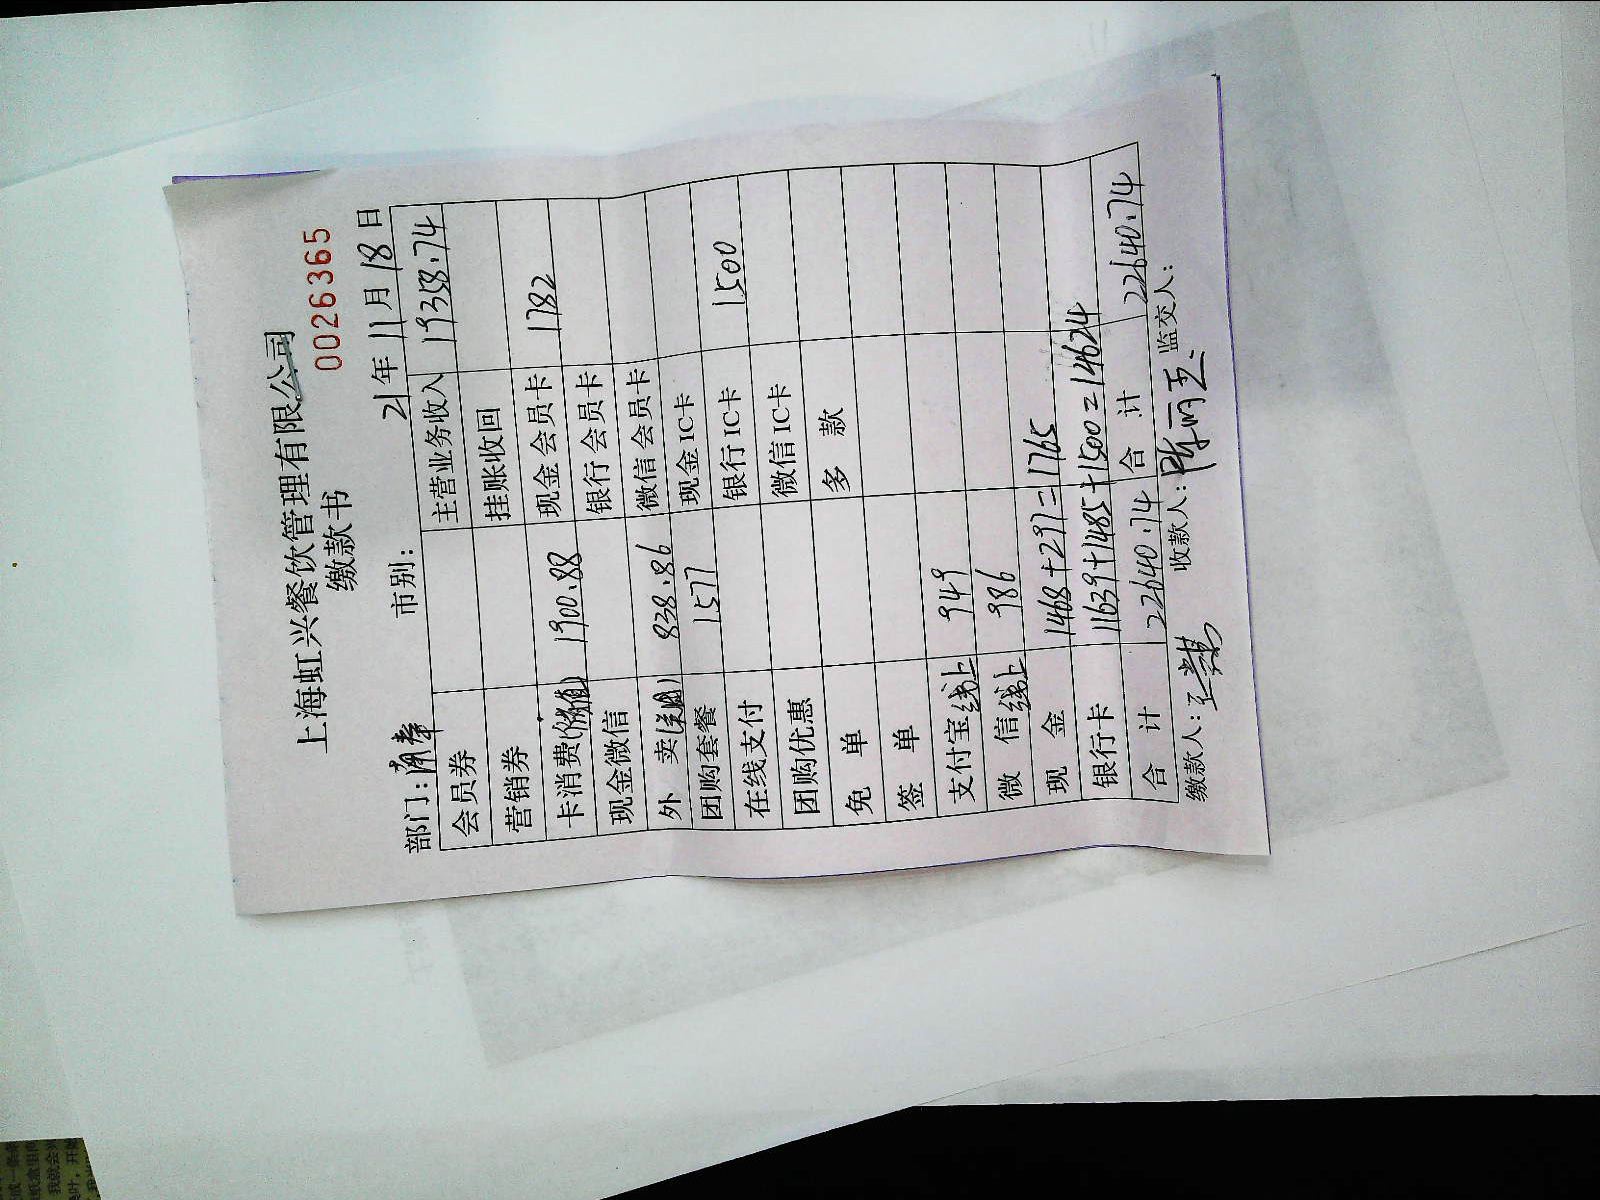 上海虹兴餐饮管理有限公司
缴款书 0026365
部门: 市别: 21年 11月 18日
会员券 主营业务收入 19358.74
营销券 挂账收回
卡消费(储值) 1900.88 现金会员卡 1782
现金微信 银行会员卡
外 卖(美团) 838.86 微信会员卡
团购套餐 1577 现金IC卡
在线支付 银行IC卡 1500
团购优惠 微信IC卡
免 单 多 款
签 单
支付宝线上 949
微 信线上 986
现 金 1468+297=1765
银行卡 11639+1485+1500=14624
合 计 22640.74 合 计 22640.74
缴款人: 收款人: 监交人: